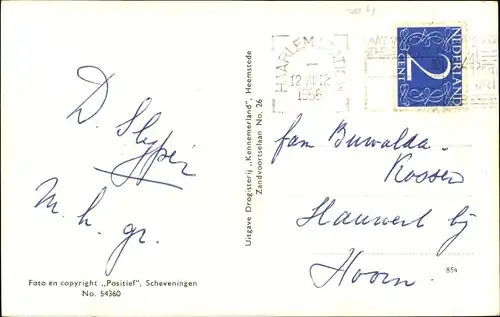 D. Slyper
M. h. gr.
Foto en copyright „Positief", Scheveningen
No. 54360
Uitgave Drogisterij „Kennemerland", Heemstede
Zandvoortselaan No. 26
HAARLEM STATION
1
12 VIII 12
1956
NEDERLAND
2
CENT
fam Buwalda-
Kossen
Hauwert bij
Hoorn.
854